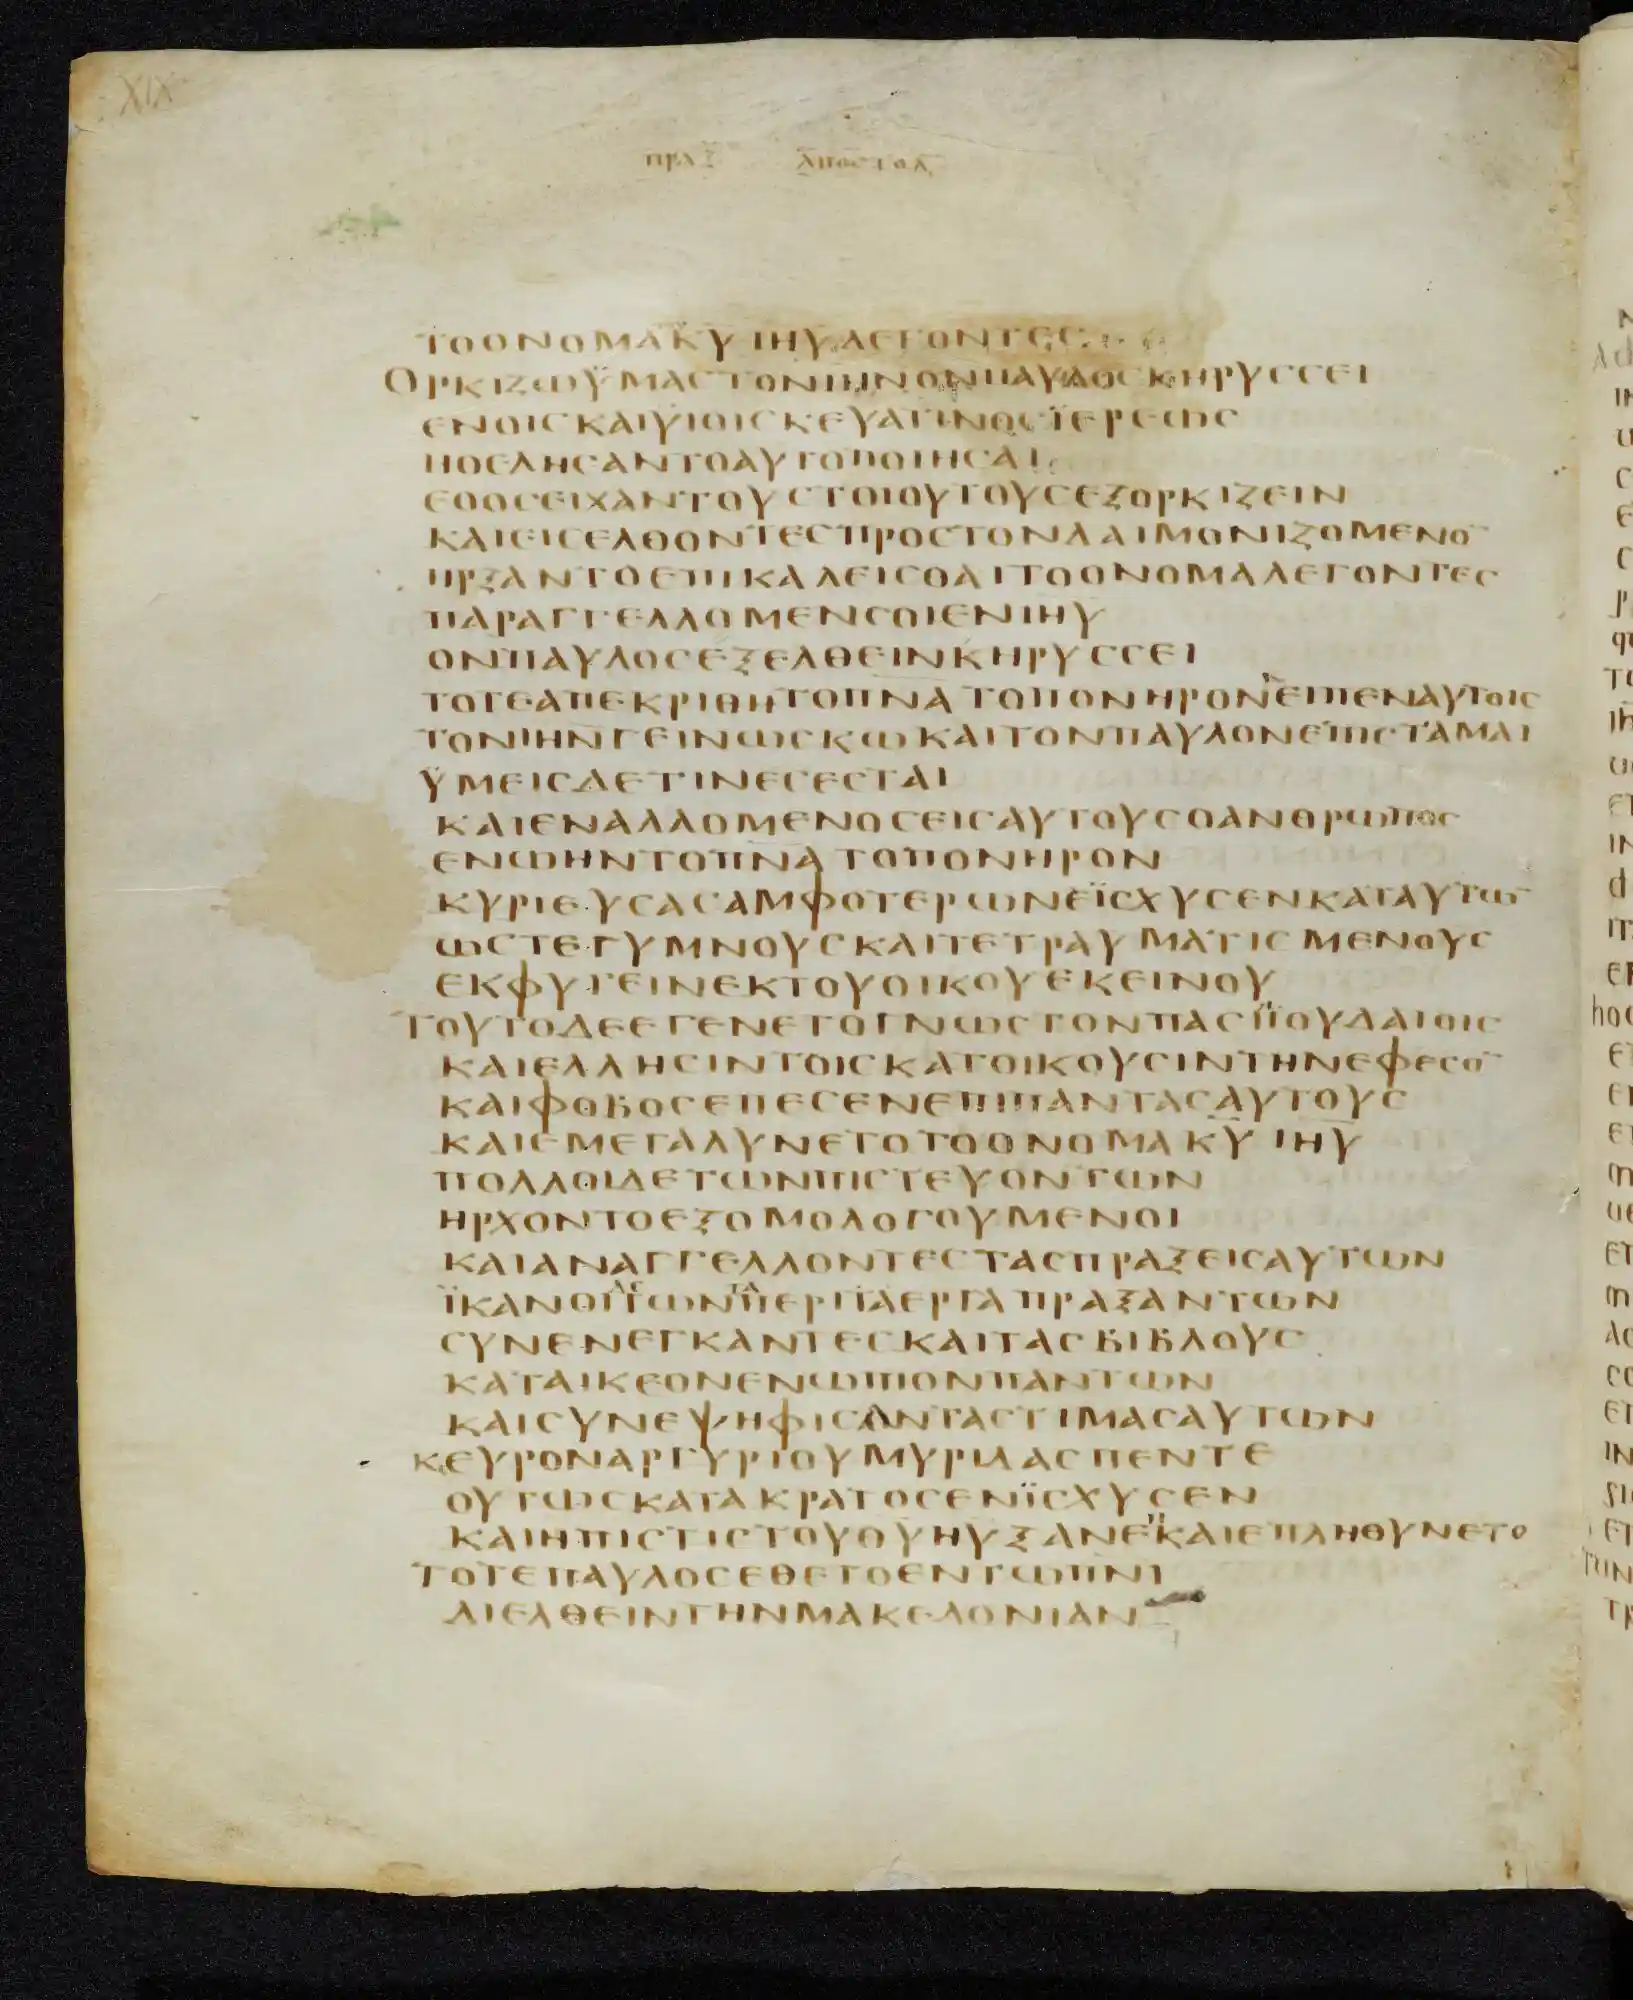 XIX
ΠΡΑΞ ΑΠΟΣΤΟΛ
ΤΟΟΝΟΜΑΚΥ ΙΗΥ ΛΕΓΟΝΤΕΣ
ΟΡΚΙΖΩΫΜΑΣΤΟΝΙΗΝΟΝΠΑΥΛΟΣΚΗΡΥΣΣΕΙ
ΕΝΟΙΣΚΑΙΫΙΟΙΣΚΕΥΑΤΙΝΟΣΪΕΡΕΩΣ
ΗΘΕΛΗΣΑΝΤΟΑΥΤΟΠΟΙΗΣΑΙ
ΕΘΟΣΕΙΧΑΝΤΟΥΣΤΟΙΟΥΤΟΥΣΕΞΟΡΚΙΖΕΙΝ
ΚΑΙΕΙΣΕΛΘΟΝΤΕΣΠΡΟΣΤΟΝΔΑΙΜΟΝΙΖΟΜΕΝΟ̅
ΗΡΞΑΝΤΟΕΠΙΚΑΛΕΙΣΘΑΙΤΟΟΝΟΜΑΛΕΓΟΝΤΕΣ
ΠΑΡΑΓΓΕΛΛΟΜΕΝΣΟΙΕΝΙΗΥ
ΟΝΠΑΥΛΟΣΕΞΕΛΘΕΙΝΚΗΡΥΣΣΕΙ
ΤΟΤΕΑΠΕΚΡΙΘΗΤΟΠΝΑΤΟΠΟΝΗΡΟΝΕΙΠΕΝΑΥΤΟΙΣ
ΤΟΝΙΗΝΓΕΙΝΩΣΚΩΚΑΙΤΟΝΠΑΥΛΟΝΕΠΙΣΤΑΜΑΙ
ΫΜΕΙΣΔΕΤΙΝΕΣΕΣΤΑΙ
ΚΑΙΕΝΑΛΛΟΜΕΝΟΣΕΙΣΑΥΤΟΥΣΟΑΝΘΡΩΠΟΣ
ΕΝΩΗΝΤΟΠΝΑΤΟΠΟΝΗΡΟΝ
ΚΥΡΙΕΥΣΑΣΑΜΦΟΤΕΡΩΝΕΪΣΧΥΣΕΝΚΑΤΑΥΤΩ̅
ΩΣΤΕΓΥΜΝΟΥΣΚΑΙΤΕΤΡΑΥΜΑΤΙΣΜΕΝΟΥΣ
ΕΚΦΥΓΕΙΝΕΚΤΟΥΟΙΚΟΥΕΚΕΙΝΟΥ
ΤΟΥΤΟΔΕΕΓΕΝΕΤΟΓΝΩΣΤΟΝΠΑΣΙΪΟΥΔΑΙΟΙΣ
ΚΑΙΕΛΛΗΣΙΝΤΟΙΣΚΑΤΟΙΚΟΥΣΙΝΤΗΝΕΦΕΣΟ̅
ΚΑΙΦΟΒΟΣΕΠΕΣΕΝΕΠΙΠΑΝΤΑΣΑΥΤΟΥΣ
ΚΑΙΕΜΕΓΑΛΥΝΕΤΟΤΟΟΝΟΜΑΚΥ ΙΗΥ
ΠΟΛΛΟΙΔΕΤΩΝΠΙΣΤΕΥΟΝΤΩΝ
ΗΡΧΟΝΤΟΕΞΟΜΟΛΟΓΟΥΜΕΝΟΙ
ΚΑΙΑΝΑΓΓΕΛΛΟΝΤΕΣΤΑΣΠΡΑΞΕΙΣΑΥΤΩΝ
ΪΚΑΝΟΙΔΕΤΩΝΤΑΠΕΡΙΓΑΕΡΓΑΠΡΑΞΑΝΤΩΝ
ΣΥΝΕΝΕΓΚΑΝΤΕΣΚΑΙΤΑΣΒΙΒΛΟΥΣ
ΚΑΤΑΙΚΕΟΝΕΝΩΠΙΟΝΠΑΝΤΩΝ
ΚΑΙΣΥΝΕΨΗΦΙΣΑΝΤΑΣΤΙΜΑΣΑΥΤΩΝ
ΚΕΥΡΟΝΑΡΓΥΡΙΟΥΜΥΡΙΔΑΣΠΕΝΤΕ
ΟΥΤΩΣΚΑΤΑΚΡΑΤΟΣΕΝΪΣΧΥΣΕΝ
ΚΑΙΗΠΙΣΤΙΣΤΟΥΘΥΗΥΞΑΝΕΚΑΙΕΠΛΗΘΥΝΕΤΟ
ΤΟΤΕΠΑΥΛΟΣΕΘΕΤΟΕΝΤΩΠΝΙ
ΔΙΕΛΘΕΙΝΤΗΝΜΑΚΕΔΟΝΙΑΝ